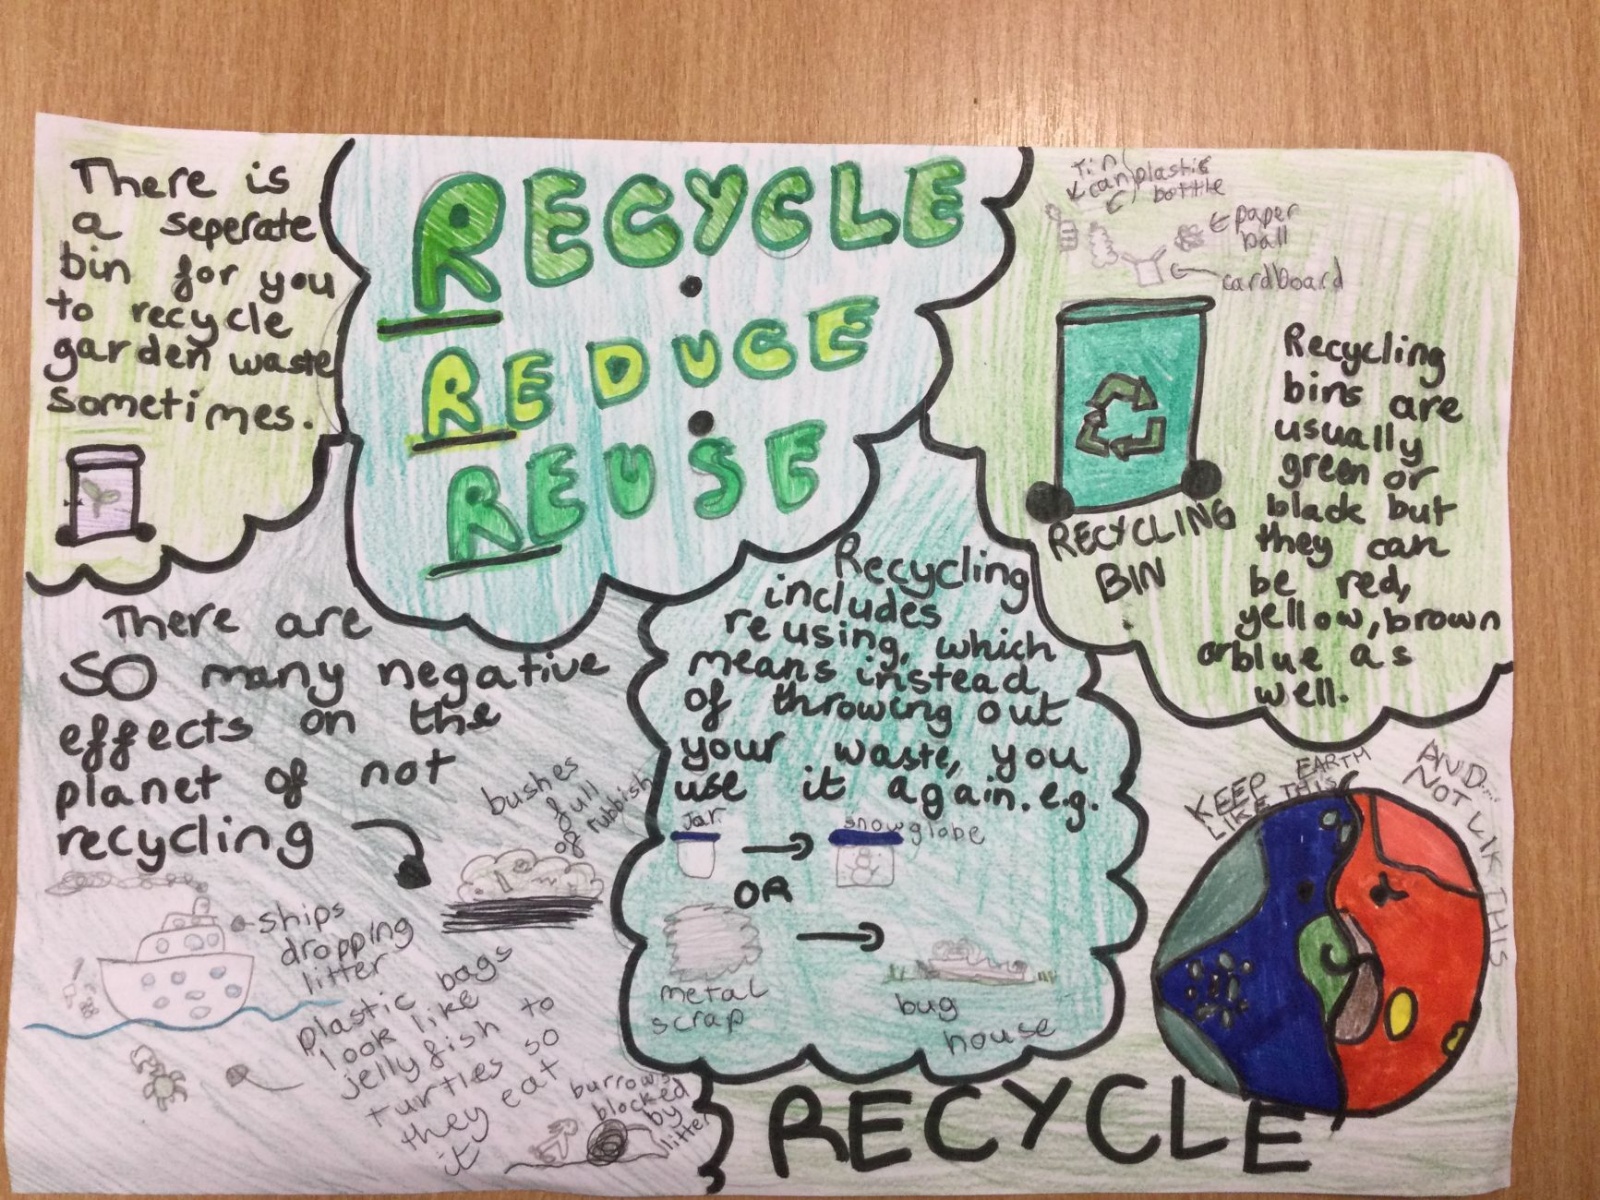 There is
a seperate
bin for you
to recycle
garden waste
sometimes.
RECYCLE
REDUCE
REUSE
Tin
can
plastic
botttle
paper
ball
cardboard
RECYCLING
BIN
Recycling
bins are
usually
green or
black but
they can
be red,
yellow, brown
or blue as
well.
There are
SO many negative
effects on the
planet of not
recycling
bushes
full
of rubbish
ships
dropping
litter
plastic bags
look like
jellyfish to
turtles so
they eat
it
burrows
blocked
by
litter
Recycling
includes
reusing, which
means instead
of throwing out
your waste, you
use it again. e.g.
Jar
snowglobe
OR
metal
scrap
bug
house
KEEP EARTH
LIKE THIS
AND....
NOT LIKE THIS
RECYCLE